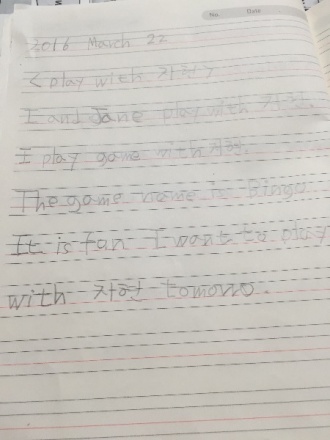 No. Date
2016 March 22
< play with 자현 >
I and Jane play with 자현.
I play game with 자현.
The game name is Bingo.
It is fan I want to play
with 자현 tomorro.